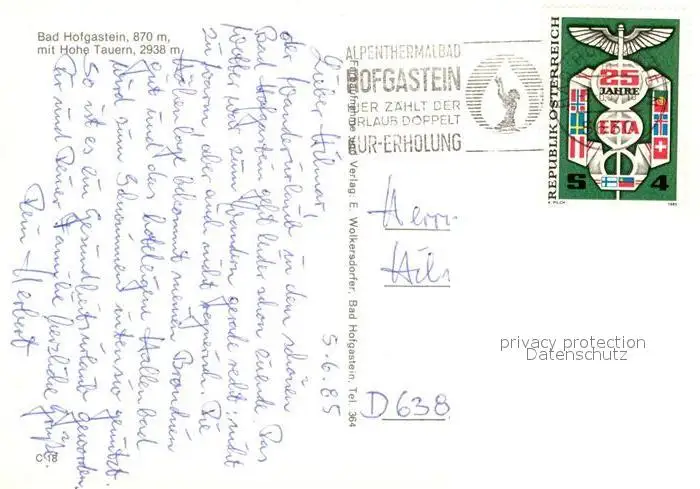 Bad Hofgastein, 870 m,
mit Hohe Tauern, 2938 m
5.6.85
Lieber Hilmar,
der Wanderurlaub in dem schönen
Bad Hofgastein geht leider schon zuende. Das
Wetter war zum Wandern gerade recht: nicht
zu warm, aber auch nicht regnerisch. Die
Höhenlage bekommt meinen Bronchien
gut und das hoteleigene Hallenbad
wird zum Schwimmen intensiv genutzt.
So ist es ein Gesundheitsurlaub geworden.
Dir und Deiner Familie herzliche Grüße.
Dein Herbert
C 18
Farbaufnahme und Verlag: E. Wolkersdorfer, Bad Hofgastein, Tel. 364
ALPENTHERMALBAD
HOFGASTEIN
HIER ZÄHLT DER
URLAUB DOPPELT
KUR-ERHOLUNG
REPUBLIK ÖSTERREICH
25
JAHRE
EFTA
S 4
A. PILCH
1985
Herrn
Hil
D 638
privacy protection
Datenschutz